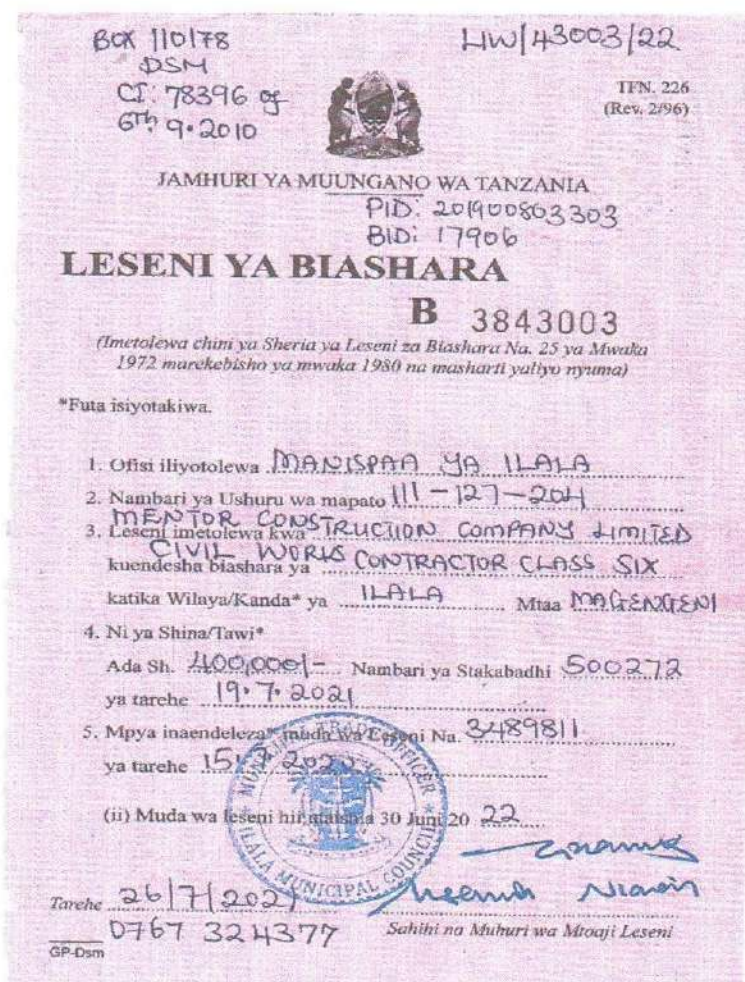 BOX 110178
DSM
CI: 78396 of
6th 9.2010
LIW/43003/22
TFN. 226
(Rev. 2/96)
JAMHURI YA MUUNGANO WA TANZANIA
PID: 201900803303
BID: 17906
LESENI YA BIASHARA
B 3843003
(Imetolewa chini ya Sheria ya Leseni za Biashara Na. 25 ya Mwaka
1972 marekebisho ya mwaka 1980 na masharti yaliyo nyuma)
*Futa isiyotakiwa.
1. Ofisi iliyotolewa MANISPAA YA ILALA
2. Nambari ya Ushuru wa mapato 111-127-204
3. Leseni imetolewa kwa MENTOR CONSTRUCTION COMPANY LIMITED
kuendesha biashara ya CIVIL WORKS CONTRACTOR CLASS SIX
katika Wilaya/Kanda* ya ILALA Mtaa MAGENGENI
4. Ni ya Shina/Tawi*
Ada Sh. 400,000/- Nambari ya Stakabadhi 500272
ya tarehe 19.7.2021
5. Mpya inaendeleza* muda wa Leseni Na. 3489811
ya tarehe 15. 2020
(ii) Muda wa leseni hii utaishia 30 Juni 2022
MUNICIPAL TRADE OFFICER
ILALA MUNICIPAL COUNCIL
Tarehe 26/7/2021
0767 324377
Sahihi na Muhuri wa Mtoaji Leseni
GP-Dsm